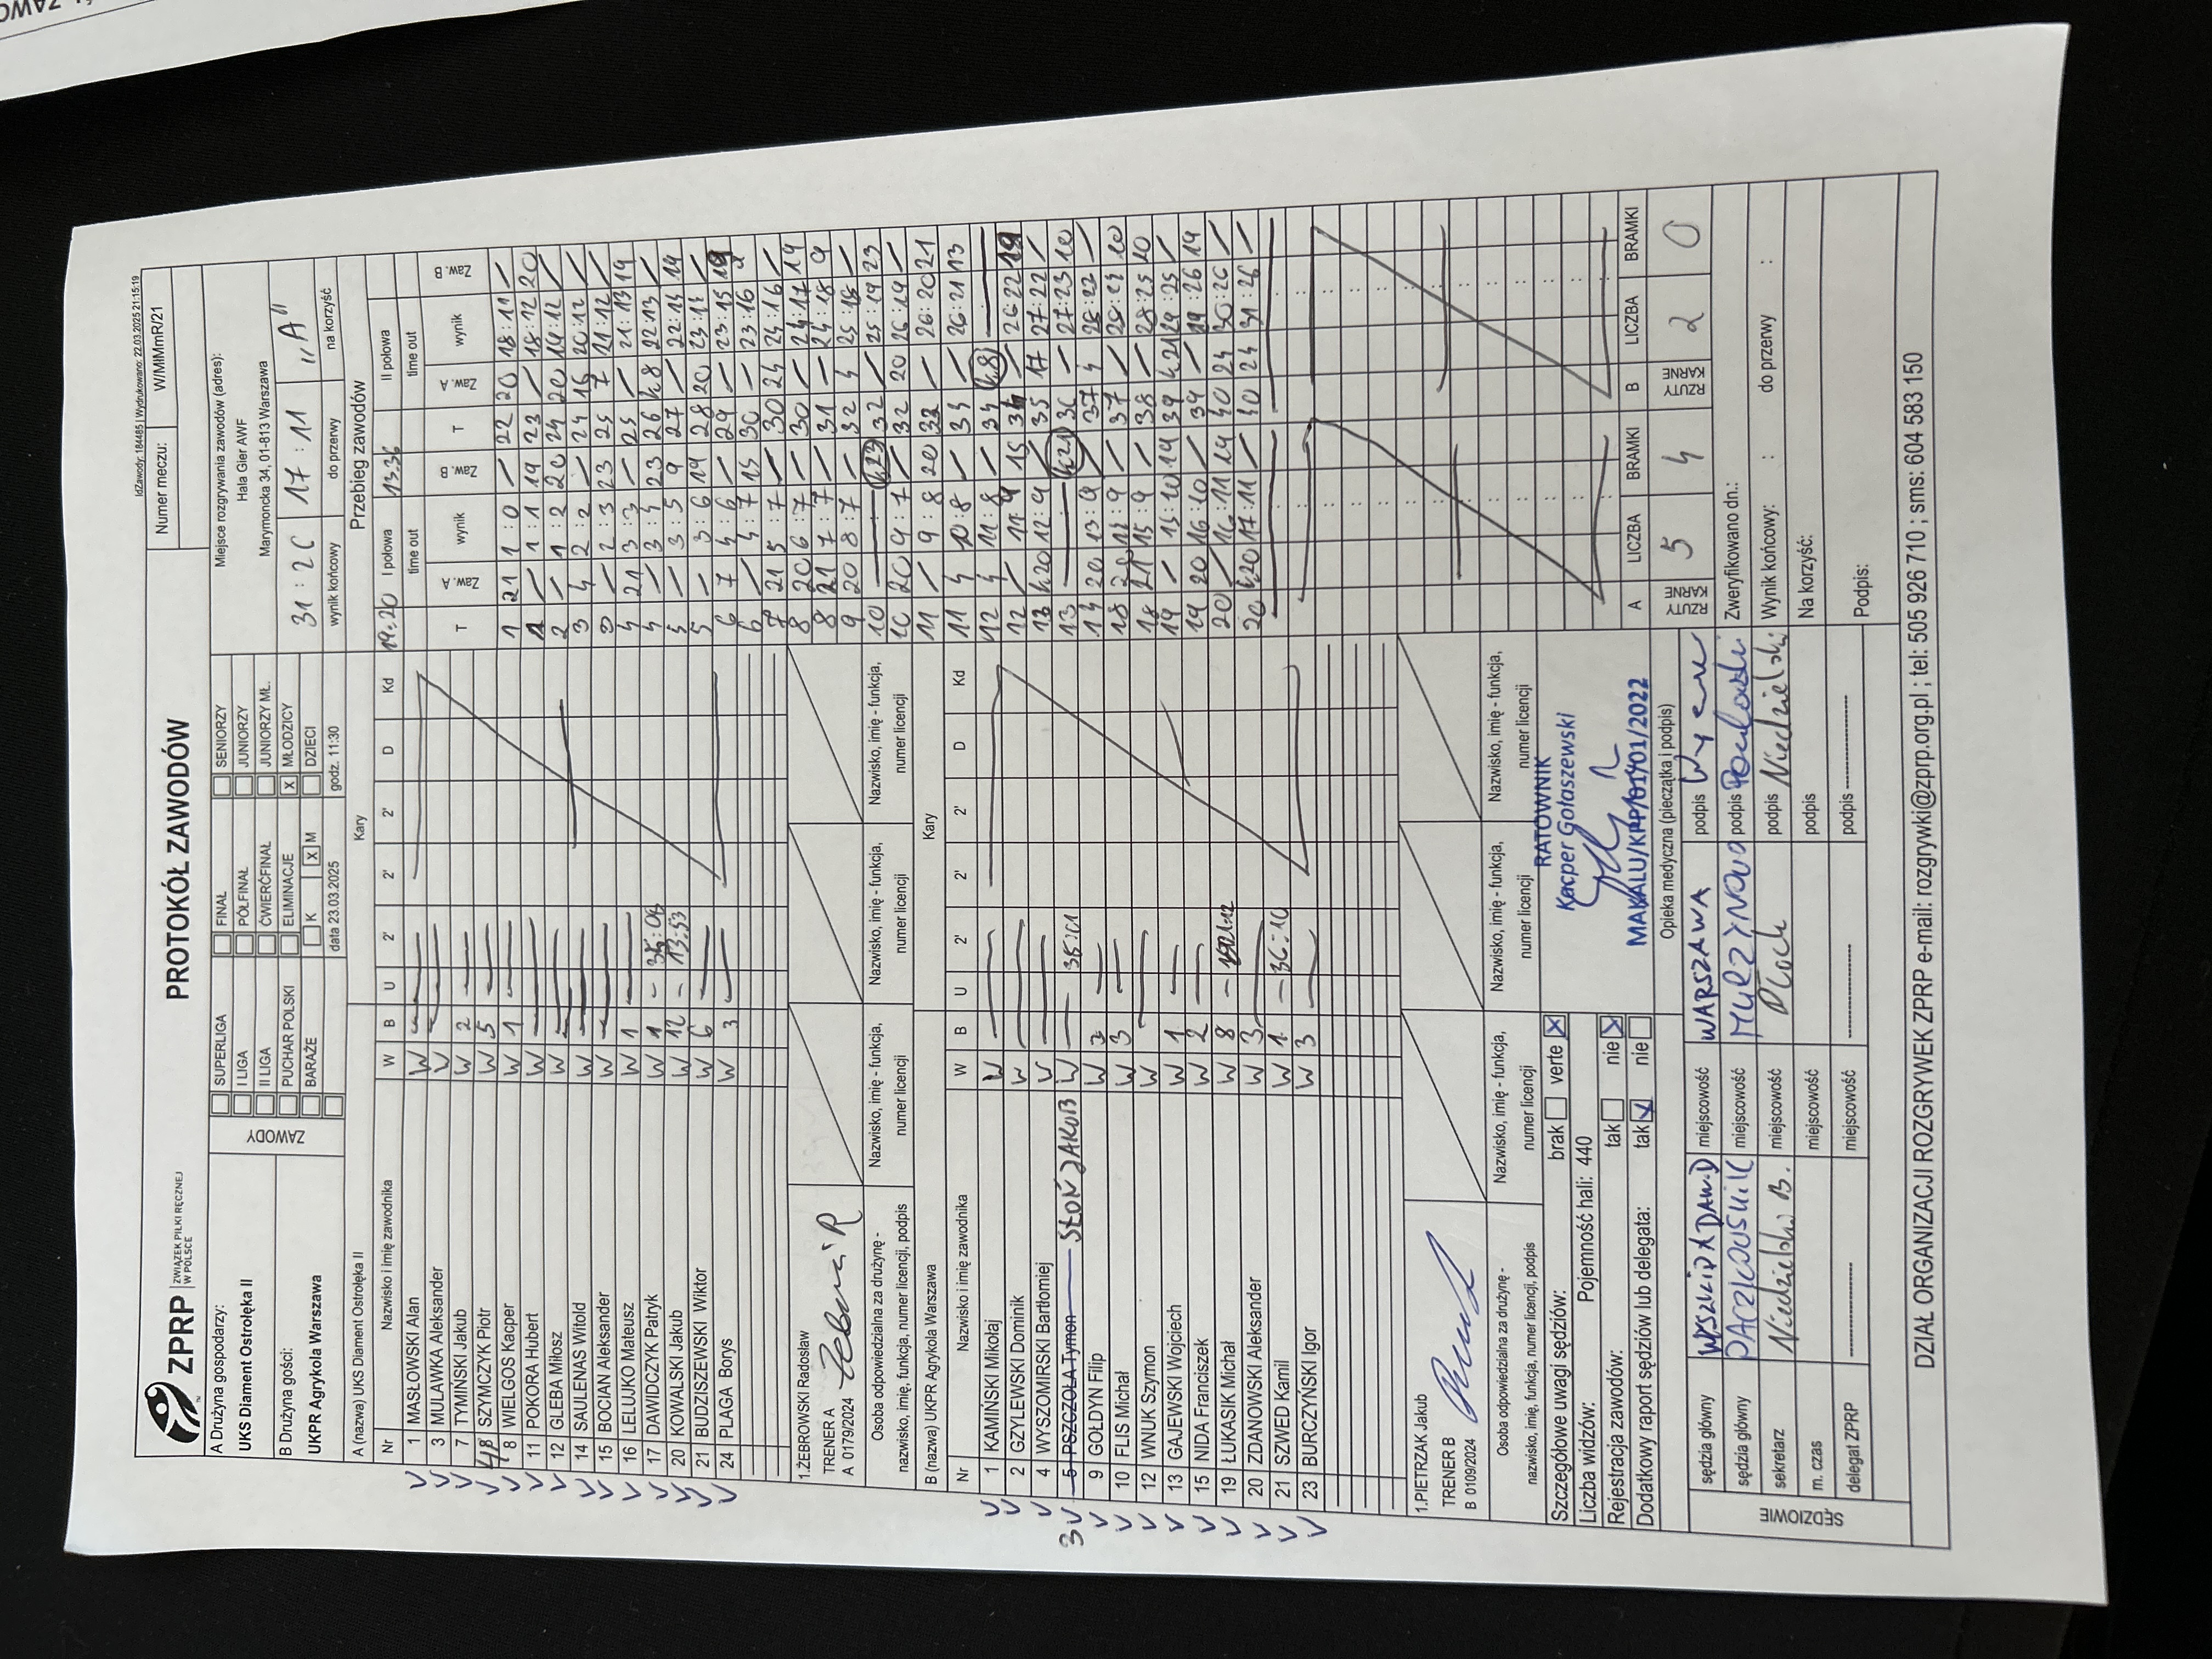 IdZawody: 184485 | Wydrukowano: 22.03.2025 21:15:19
ZPRP ZWIĄZEK PIŁKI RĘCZNEJ W POLSCE
PROTOKÓŁ ZAWODÓW
Numer meczu: W/MłMmR/21
A Drużyna gospodarzy:
UKS Diament Ostrołęka II
B Drużyna gości:
UKPR Agrykola Warszawa
ZAWODY
SUPERLIGA FINAŁ SENIORZY
I LIGA PÓŁFINAŁ JUNIORZY
II LIGA ĆWIERĆFINAŁ JUNIORZY MŁ.
PUCHAR POLSKI ELIMINACJE X MŁODZICY
BARAŻE K X M DZIECI
data 23.03.2025 godz. 11:30
Miejsce rozgrywania zawodów (adres):
Hala Gier AWF
Marymoncka 34, 01-813 Warszawa
31 : 26 17 : 11 „A"
wynik końcowy do przerwy na korzyść
A (nazwa) UKS Diament Ostrołęka II Kary
Nr Nazwisko i imię zawodnika W B U 2' 2' 2' D Kd
1 MASŁOWSKI Alan W
3 MULAWKA Aleksander W
7 TYMIŃSKI Jakub W 2
SZYMCZYK Piotr W 5
8 WIELGOS Kacper W 1
11 POKORA Hubert W
12 GLEBA Miłosz W
14 SAULENAS Witold W
15 BOCIAN Aleksander W
16 LELUJKO Mateusz W 1
17 DAWIDCZYK Patryk W 1
20 KOWALSKI Jakub W 12 13:53
21 BUDZISZEWSKI Wiktor W 6
24 PLAGA Borys W 3
1.ŻEBROWSKI Radosław
TRENER A
A 0179/2024
Osoba odpowiedzialna za drużynę - nazwisko, imię, funkcja, numer licencji, podpis
Nazwisko, imię - funkcja, numer licencji
Nazwisko, imię - funkcja, numer licencji
Nazwisko, imię - funkcja, numer licencji
B (nazwa) UKPR Agrykola Warszawa Kary
Nr Nazwisko i imię zawodnika W B U 2' 2' 2' D Kd
1 KAMIŃSKI Mikołaj W
2 GZYLEWSKI Dominik W
4 WYSZOMIRSKI Bartłomiej W
3 5 PSZCZOŁA Tymon SŁOŃ JAKUB W 35:01
9 GOŁDYN Filip W 2
10 FLIS Michał W 3
12 WNUK Szymon W
13 GAJEWSKI Wojciech W 1
15 NIDA Franciszek W 2
19 ŁUKASIK Michał W 8
20 ZDANOWSKI Aleksander W 3
21 SZWED Kamil W 1 36:10
23 BURCZYŃSKI Igor W 3
1.PIETRZAK Jakub
TRENER B
B 0109/2024
Osoba odpowiedzialna za drużynę - nazwisko, imię, funkcja, numer licencji, podpis
Nazwisko, imię - funkcja, numer licencji
Nazwisko, imię - funkcja, numer licencji
Nazwisko, imię - funkcja, numer licencji
Szczegółowe uwagi sędziów: brak verte X
Liczba widzów: Pojemność hali: 440
Rejestracja zawodów: tak nie X
Dodatkowy raport sędziów lub delegata: tak X nie
RATOWNIK
Kacper Gołaszewski
MAKALU/KPP/01401/2022
Opieka medyczna (pieczątka i podpis)
SĘDZIOWIE
sędzia główny miejscowość WARSZAWA podpis
sędzia główny miejscowość podpis
sekretarz Niedzielski B. miejscowość Płock podpis Niedzielski
m. czas miejscowość podpis
delegat ZPRP miejscowość podpis
Przebieg zawodów
I połowa II połowa
time out 13:36 time out
T Zaw. A wynik Zaw. B T Zaw. A wynik Zaw. B
1 21 1:0 / 22 20 18:11 /
1 / 1:1 19 23 / 18:12 20
2 / 1:2 20 24 20 19:12 /
3 4 2:2 / 24 16 20:12 /
3 / 2:3 23 25 7 21:12 /
4 21 3:3 / 25 / 21:13 19
4 / 3:4 23 26 k8 22:13 /
5 / 3:5 9 27 / 22:14 19
5 / 3:6 19 28 20 23:14 /
6 7 4:6 / 29 / 23:15 19
6 / 4:7 15 30 / 23:16
7 21 5:7 / 30 24 24:16 /
8 20 6:7 / 30 / 24:17 19
8 21 7:7 / 31 / 24:18 9
9 20 8:7 / 32 4 25:18 /
10 k23 32 / 25:19 23
10 20 9:7 / 32 20 26:19 /
11 / 9:8 20 33 / 26:20 21
11 4 10:8 / 34 / 26:21 13
12 4 11:8 / 34 k8
12 / 11:9 15 34 / 26:22 19
13 k20 12:9 / 35 17 27:22 /
13 k21 36 / 27:23 10
14 20 13:9 / 37 4 28:23 /
18 20 14:9 / 37 / 28:24 10
18 21 15:9 / 38 / 28:25 20
19 / 15:10 19 39 k21 29:25 /
19 20 16:10 / 39 / 29:26 19
20 / 16:11 19 40 24 30:26 /
20 k20 17:11 / 40 24 31:26 /
A RZUTY KARNE LICZBA 5 BRAMKI 4
B RZUTY KARNE LICZBA 2 BRAMKI 0
Zweryfikowano dn.:
Wynik końcowy: : do przerwy :
Na korzyść:
Podpis:
DZIAŁ ORGANIZACJI ROZGRYWEK ZPRP e-mail: rozgrywki@zprp.org.pl ; tel: 505 926 710 ; sms: 604 583 150